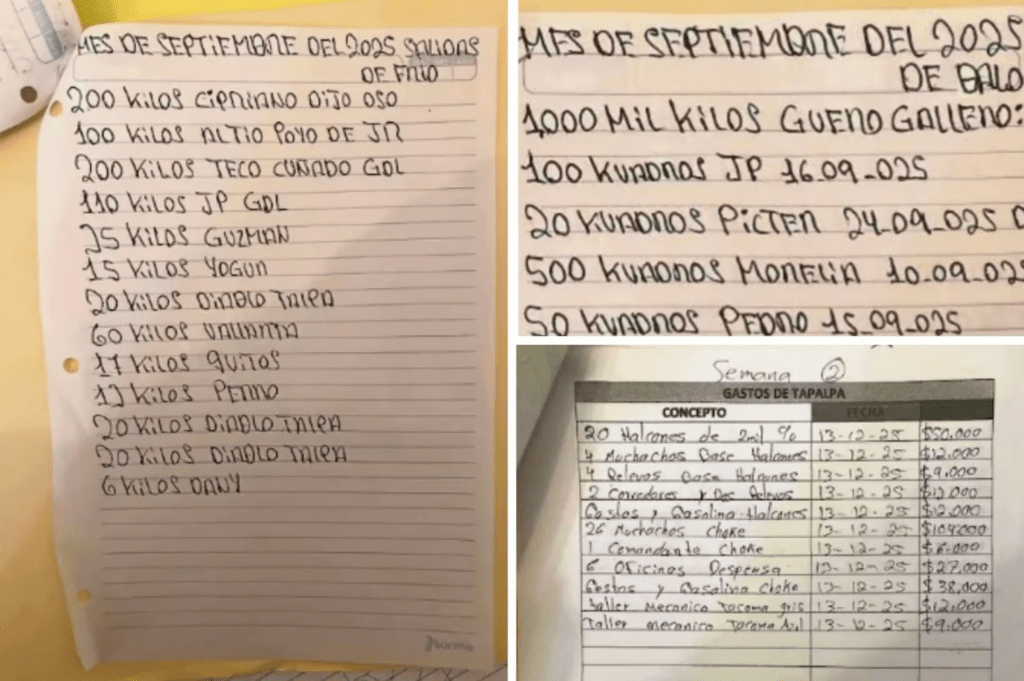 MES DE SEPTIEMBRE DEL 2025 SALIDAS
DE FRIO
200 KILOS CIPRIANO DIJO OSO
100 KILOS ALTIO POYO DE JR
200 KILOS TECO CUÑADO GDL
110 KILOS JP GDL
25 KILOS GUZMAN
15 KILOS YOGUR
20 KILOS DIABLO TALPA
60 KILOS
17 KILOS QUITOS
KILOS PEDRO
20 KILOS DIABLO TALPA
20 KILOS DIABLO TALPA
6 KILOS DANY
Norma
MES DE SEPTIEMBRE DEL 2025
DE BALO
1000 MIL KILOS GUERO GALLERO:
100 KUADROS JP 16-09-025
20 KUADROS PICTER 24-09-025
500 KUADROS MORELIA 10-09-025
50 KUADROS PEDRO 15-09-025
Semana 2
GASTOS DE TAPALPA
CONCEPTO FECHA
20 Halcones de 2mil % 13-12-25 $50,000
4 Muchachos Base Halcones 13-12-25 $12,000
4 Relevos Base Halcones 13-12-25 $9,000
2 Corredores y Dos Relevos 13-12-25
Gastos y Gasolina Halcones 13-12-25 $12,000
26 Muchachos Choke 13-12-25 $104,000
1 Comandante Choke 13-12-25 $6,000
6 Oficinas Despensa 13-12-25 $27,000
Gastos y Gasolina Choke 13-12-25 $38,000
Taller Mecanico Tacoma gris 13-12-25 $12,000
Taller mecanico Tacoma Azul 13-12-25 $9,000